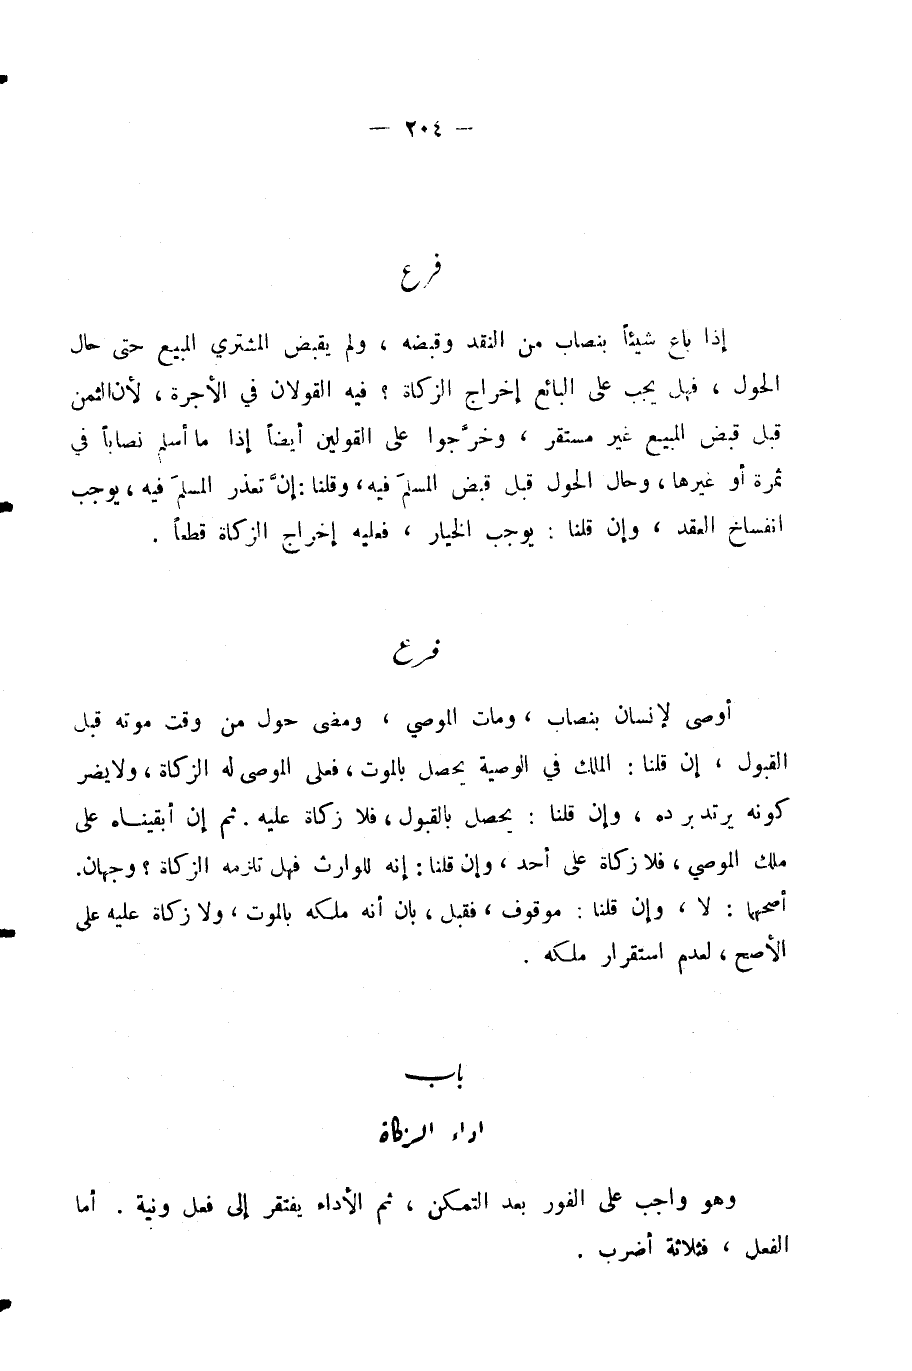 — ٢٠٤ —
فرع
إذا باع شيئاً بنصاب من النقد وقبضه ، ولم يقبض المشتري المبيع حتى حال
الحول ، فهل يجب على البائع إخراج الزكاة ؟ فيه القولان في الأجرة ، لأن الثمن
قبل قبض المبيع غير مستقر ، وخرَّجوا على القولين أيضاً إذا ما أسلم نصاباً في
ثمرة أو غيرها ، وحال الحول قبل قبض المسلَم فيه ، وقلنا : إنَّ تعذر المسلَم فيه ، يوجب
انفساخ العقد ، وإن قلنا : يوجب الخيار ، فعليه إخراج الزكاة قطعاً .
فرع
أوصى لإنسان بنصاب ، ومات الموصي ، ومضى حول من وقت موته قبل
القبول ، إن قلنا : الملك في الوصية يحصل بالموت ، فعلى الموصى له الزكاة ، ولا يضر
كونه يرتد برده ، وإن قلنا : يحصل بالقبول ، فلا زكاة عليه . ثم إن أبقيناه على
ملك الموصي ، فلا زكاة على أحد ، وإن قلنا : إنه للوارث فهل تلزمه الزكاة ؟ وجهان.
أصحها : لا ، وإن قلنا : موقوف ، فقبل ، بان أنه ملكه بالموت ، ولا زكاة عليه على
الأصح ، لعدم استقرار ملكه .
باب
اداء الزكاة
وهو واجب على الفور بعد التمكن ، ثم الأداء يفتقر إلى فعل ونية . أما
الفعل ، فثلاثة أضرب .